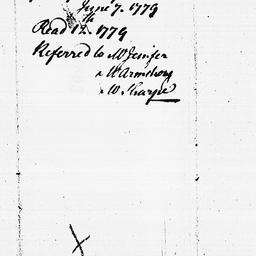 June 7. 1779
Read 12th 1779
Referred to Mr Jenifer
Mr Armstrong
Mr Sharpe